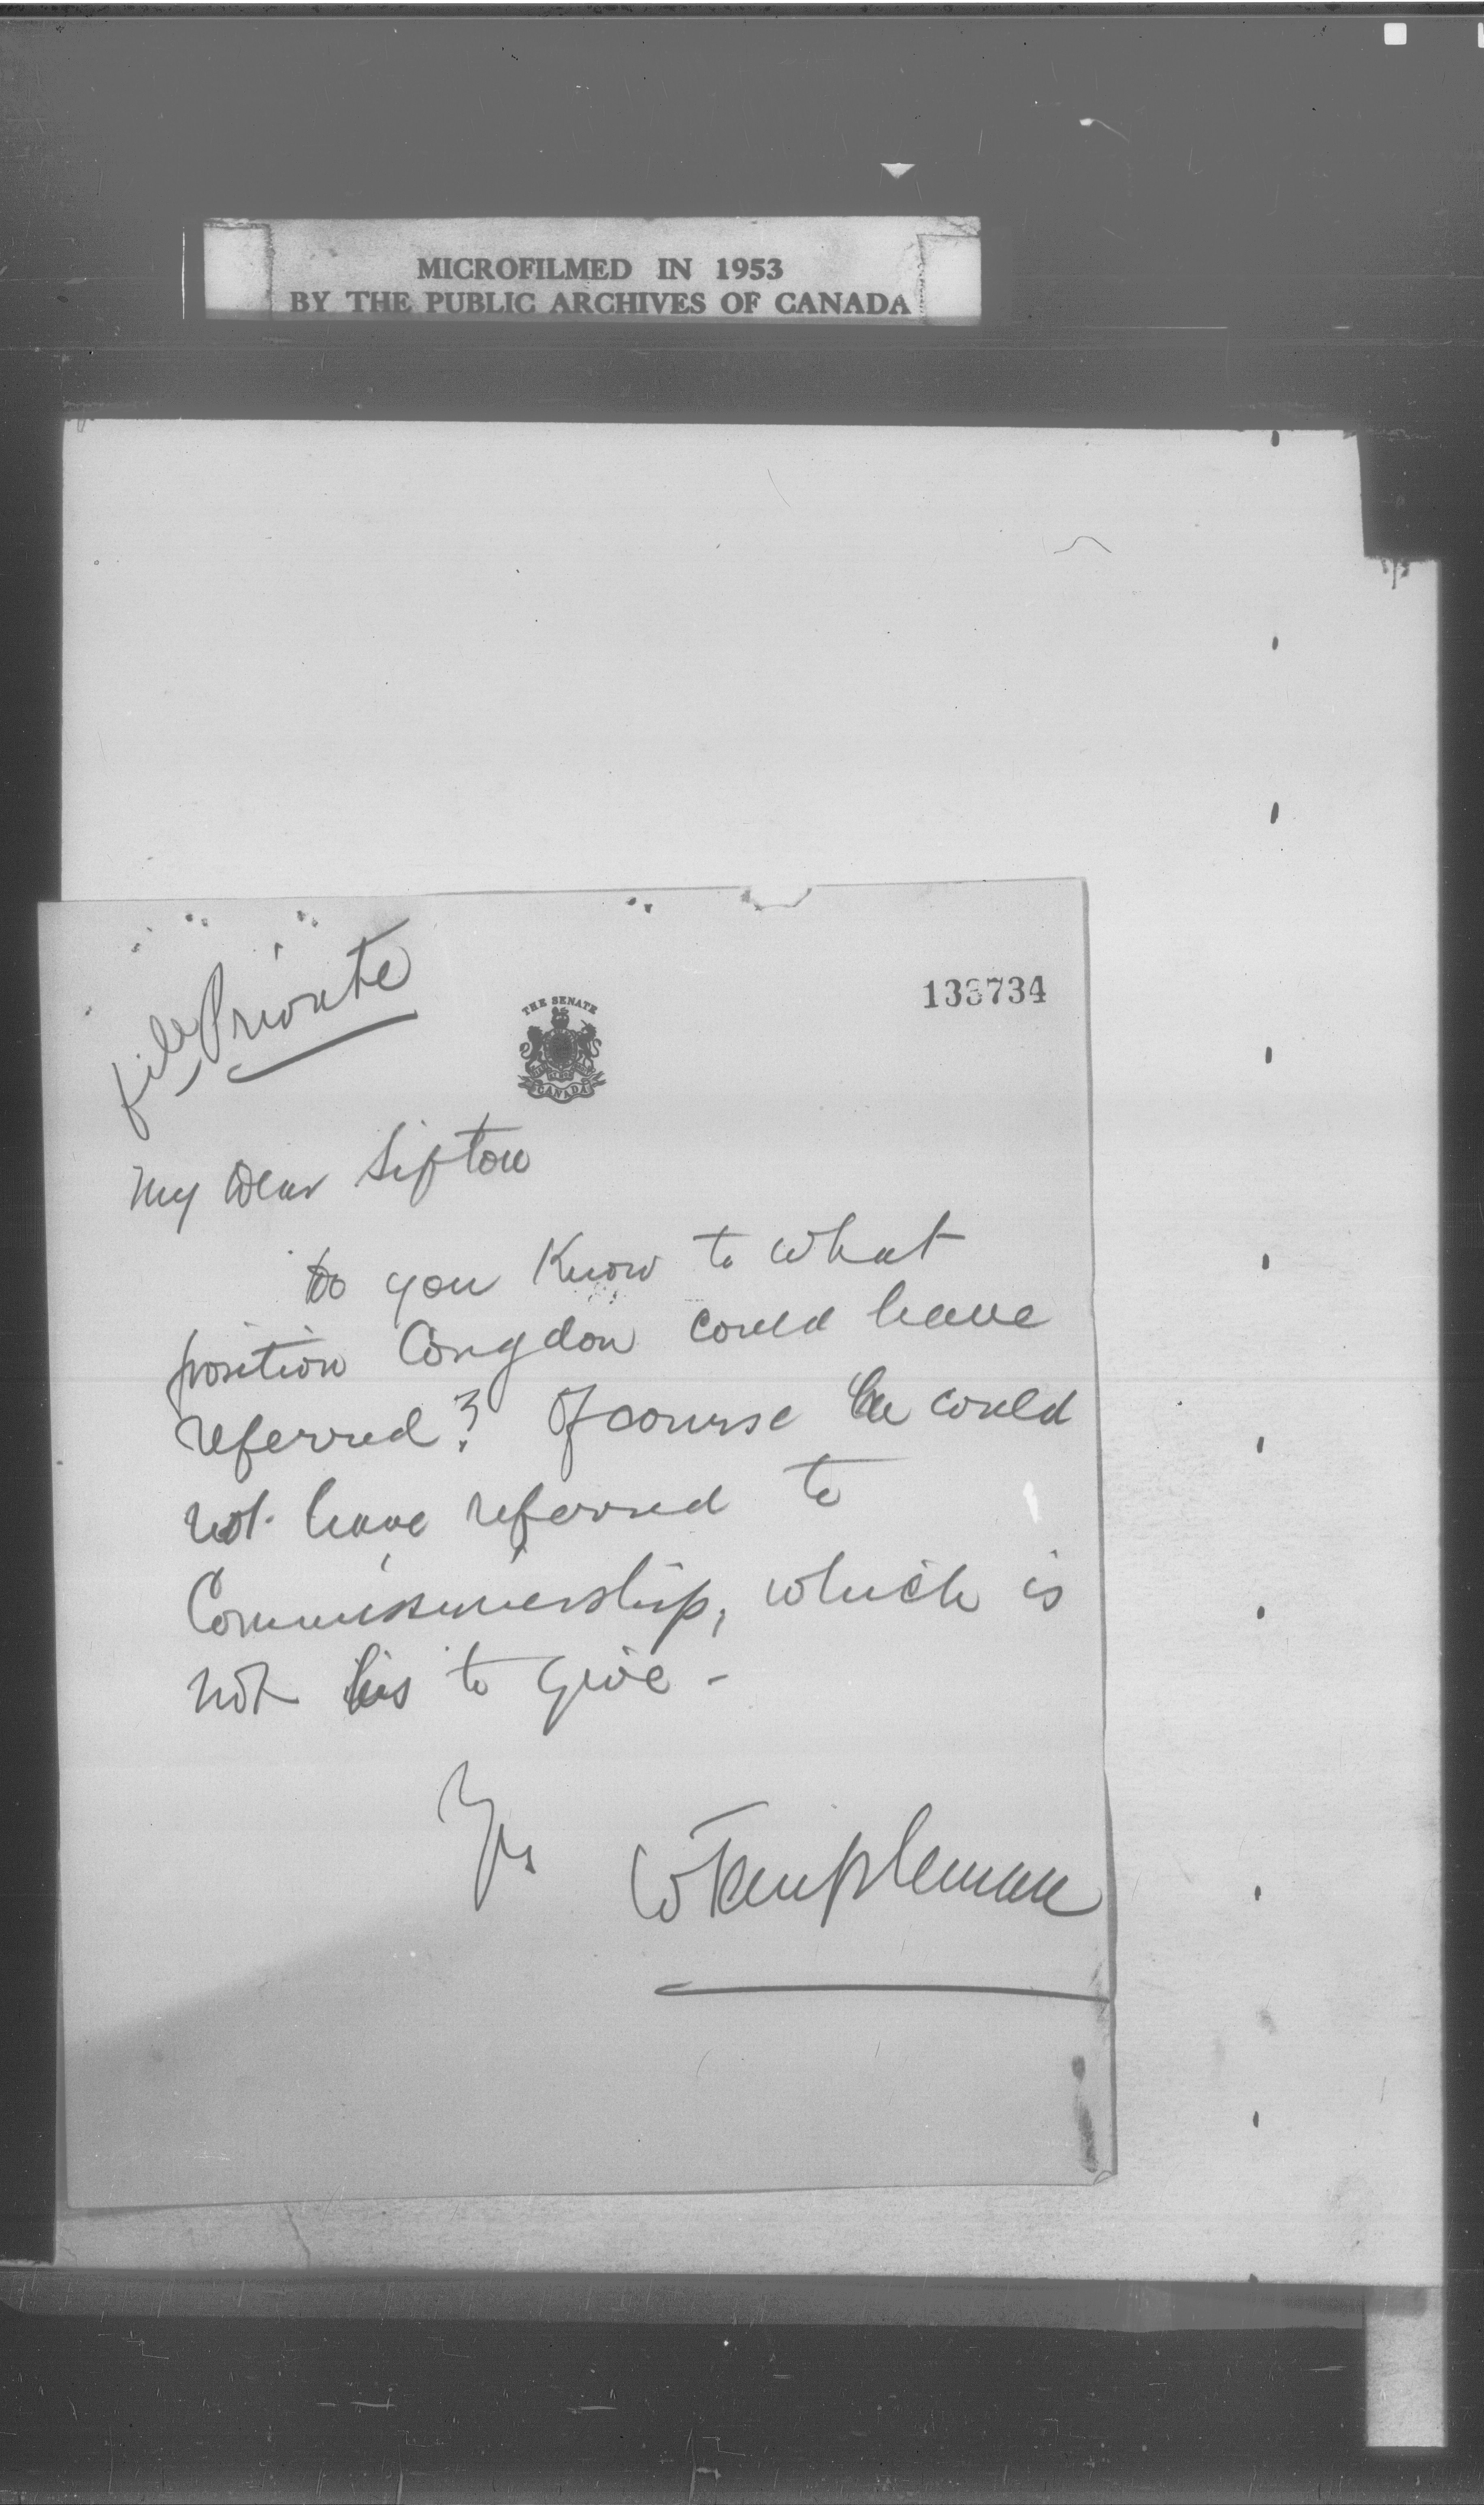 MICROFILMED IN 1953
BY THE PUBLIC ARCHIVES OF CANADA
file Private
THE SENATE
CANADA
133734
My Dear Sifton
Do you Know to what
position Congdon could have
referred? Of course he could
not have referred to
Commissionership, which is
not his to give -
Yrs
W Templeman